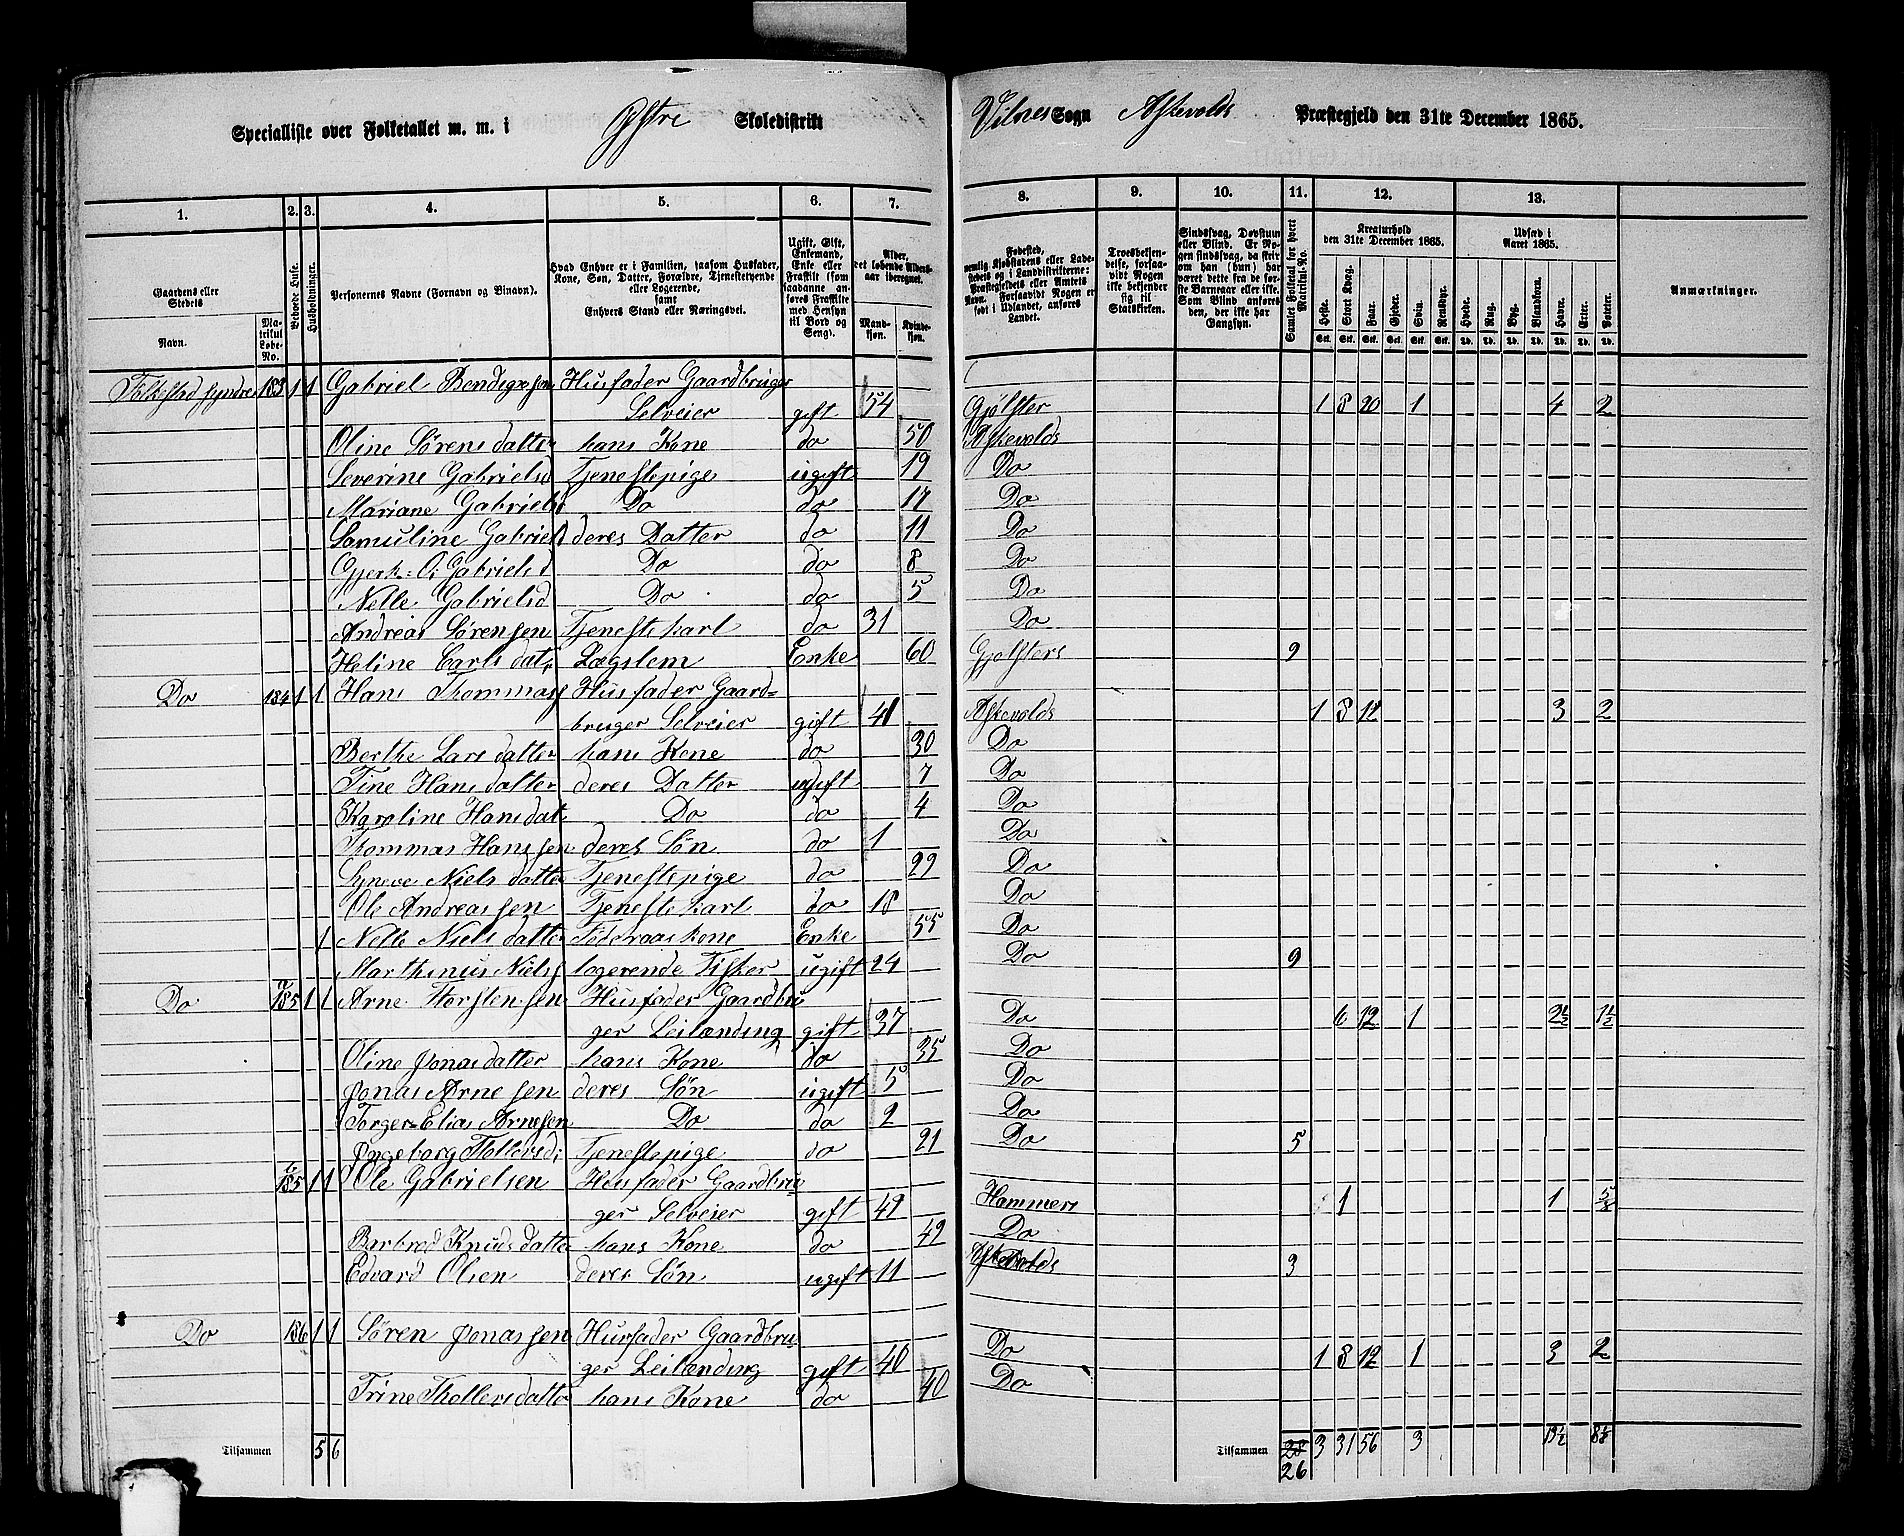 Specialliste over Folketallet m. m. i Østre Skoledistrikt Vilnes Sogn Askevolds Præstegjeld den 31te December 1865.
1. 2. 3. 4. 5. 6. 7. 8. 9. 10. 11. 12. 13.
Gaardens eller Stedets
Navn.
Matrikul Løbe-No.
Beboede Huse.
Husholdninger.
Personernes Navne (Fornavn og Binavn).
Hvad Enhver er i Familien, saasom Husfader, Kone, Søn, Datter, Forældre, Tjenestetyende eller Logerende, samt Enhvers Stand eller Næringsvei.
Ugift, Gift, Enkemand, Enke eller Fraskilt (som saadanne anføres Fraskilte med Hensyn til Bord og Seng).
Alder, det løbende Aldersaar iberegnet.
Mandkjøn.
Kvindekjøn.
Fødested, nemlig Kjøbstadens eller Ladestedets og i Landdistrikterne: Præstegjeldets eller Amtets Navn. Forsaavidt Nogen er født i Udlandet, anføres Landet.
Troesbekjendelse, forsaavidt Nogen ikke bekjender sig til Statskirken.
Sindssvag, Døvstum eller Blind. Er Nogen sindssvag, da skrives om han (hun) har været dette fra de første Barneaar eller ikke. Som Blind anføres den, der ikke har Gangsyn.
Samlet Folketal for hvert Matrikul-No.
Kreaturhold den 31te December 1865.
Heste. Stort Kvæg. Faar. Gjeder. Sviin. Rensdyr.
Udsæd i Aaret 1865.
Hvede. Rug. Byg. Blandkorn. Havre. Erter. Poteter.
Anmærkninger.
Folkestad syndre 183 1 1 Gabriel Bendigssen Husfader Gaardbruger
Selveier gift 54 Gjølster 1 8 20 1 4 2
Oline Sørensdatter hans Kone do 50 Askevolds
Severine Gabrielsd Tjenestepige ugift 19 Do
Mariane Gabrielsd Do do 17 Do
Samuline Gabriel deres Datter do 11 Do
Gjerk: O: Gabrielsd Do do 8 Do
Nelle Gabrielsd Do do 5 Do
Andreas Sørensen Tjenestekarl do 31 Do
Heline Carlsdat; Lægslem Enke 60 Gjølsters 9
Do 184 1 1 Hans Thommass Husfader Gaard=
bruger Selveier gift 41 Askevolds 1 8 12 3 2
Berthe Larsdatter hans Kone do 30 Do
Tine Hansdatter deres Datter ugift 7 Do
Karoline Hansdat Do do 4 Do
Thommas Hanssen deres Søn do 1 Do
Syneve Nielsdatter Tjenestepige do 22 Do
Ole Andreassen Tjenestekarl do 18 Do
1 Nelle Nielsdatter Føderaaskone Enke 55 Do
Marthinus Niels logerende Fisker ugift 24 Do 9
Do 185 a 1 1 Arne Thorstensen Husfader Gaardbru
ger Leilænding gift 37 Do 6 12 1 2½ 1½
Oline Jonasdatter hans Kone do 35 Do
Jonas Arnesen deres Søn ugift 5 Do
Torger=Elias Arnesen Do do 2 Do
Ingeborg Tollevsd; Tjenestepige do 21 Do 5
185 b 1 1 Ole Gabrielsen Husfader Gaardbru
ger Selveier gift 42 Hammers 1 1 5/8
Berbrod Knudsdatter hans Kone do 42 Do
Edvard Olsen deres Søn ugift 11 Askevolds 3
Do 186 1 1 Søren Jonassen Husfader Gaardbru
ger Leilænding gift 40 Do 1 8 12 1 3 2
Trine Thollersdatter hans Kone do 40 Do
Tilsammen 5 6 Tilsammen 28 26 3 31 56 3 13½ 8⅛